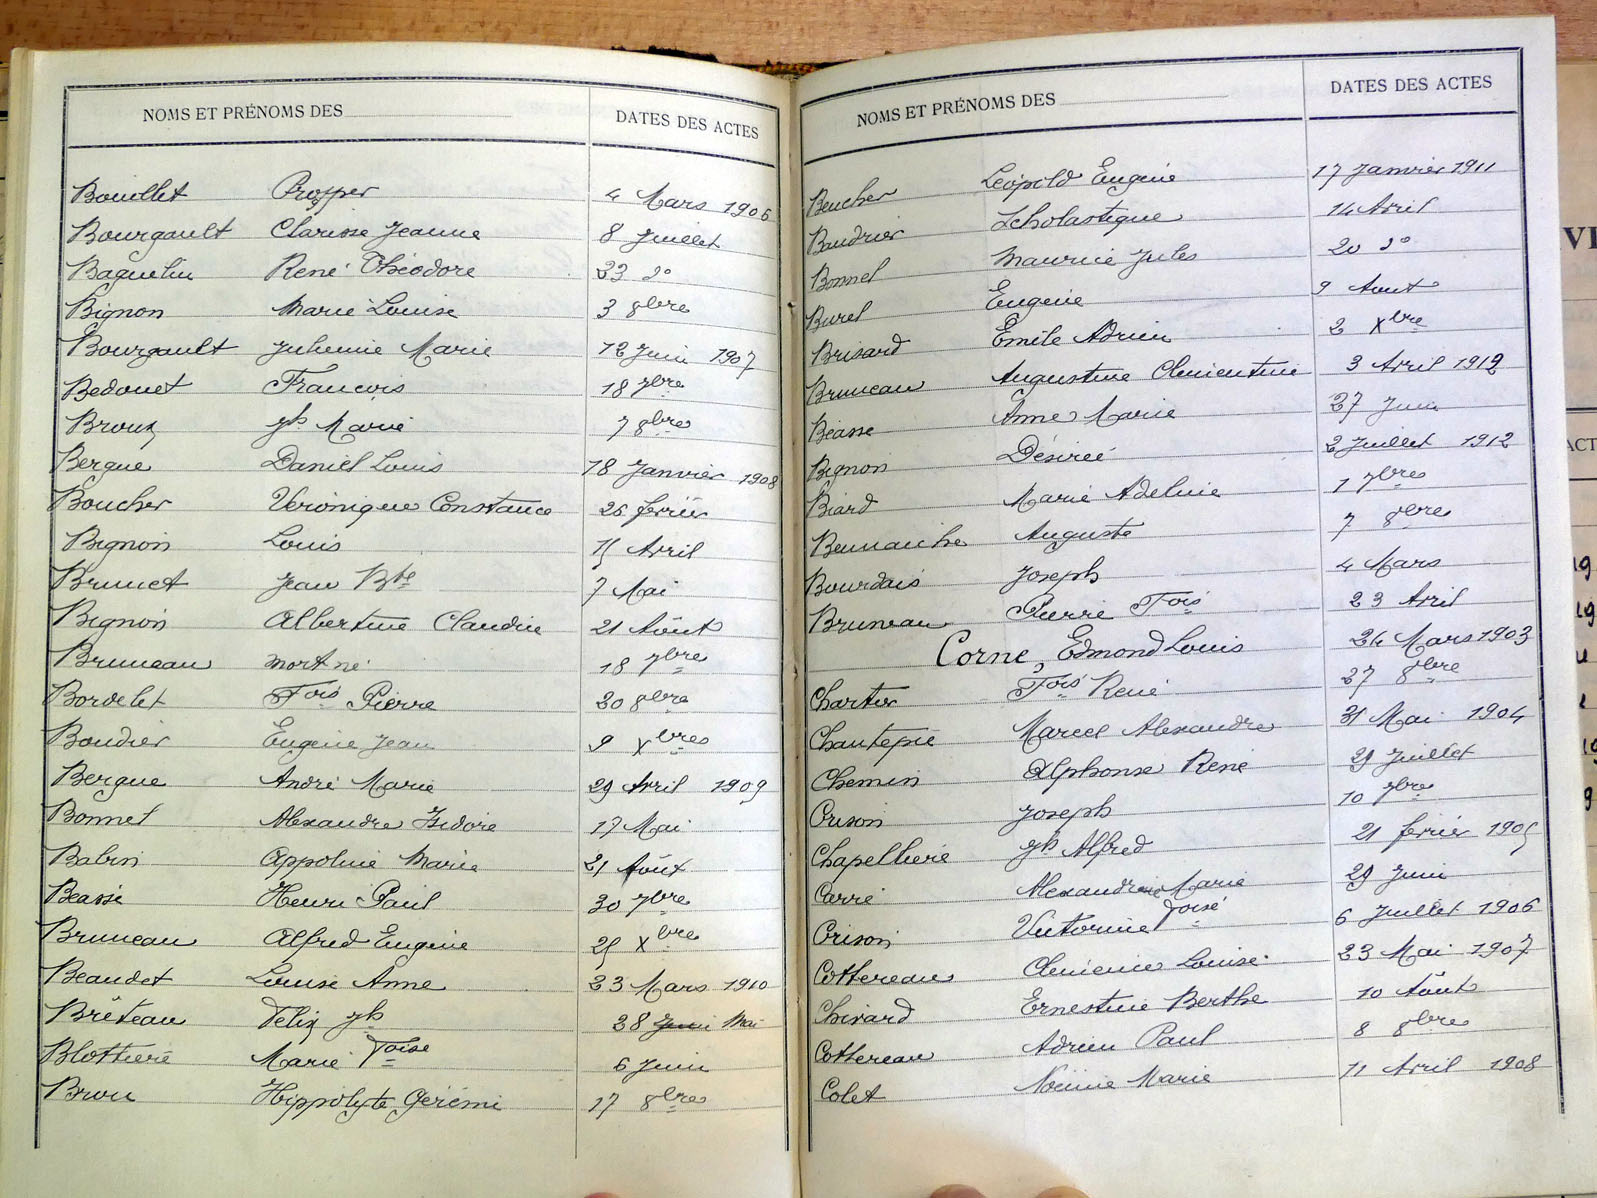 NOMS ET PRÉNOMS DES DATES DES ACTES
Bouillet Prosper 4 Mars 1906
Bourgault Clarisse Jeanne 8 Juillet
Baguelin René Théodore 23 do
Bignon Marie Louise 3 8bre
Bourgault Julienne Marie 12 Juin 1907
Bedouet François 18 7bre
Broux Jh Marie 7 8bre
Bergue Daniel Louis 18 Janvier 1908
Boucher Véronique Constance 26 février
Bignon Louis 15 Avril
Brunet Jean Bte 7 Mai
Bignon Albertine Claudine 21 Août
Bruneau mort né 18 7bre
Bordelet Fois Pierre 20 8bre
Boudier Eugène Jean 9 Xbres
Bergue André Marie 29 Avril 1909
Bonnet Alexandre Isidore 17 Mai
Babin Appoline Marie 21 Août
Beassé Henri Paul 30 7bre
Bruneau Alfred Eugène 25 Xbre
Beaudet Louise Anne 23 Mars 1910
Brêteau Felix Jh 28 Juin Mai
Blottière Marie Foise 6 Juin
Brou Hippolyte Gérémi 17 8bres
NOMS ET PRÉNOMS DES DATES DES ACTES
Beucher Léopold Eugène 17 Janvier 1911
Baudrier Scholastique 14 Avril
Bonnel Maurice Jules 20 do
Burel Eugène 9 Aout
Brisard Emile Adrien 2 Xbre
Bruneau Augustine Clémentine 3 Avril 1912
Béasse Anne Marie 27 Juin
Bignon Désirée 2 Juillet 1912
Biard Marie Adeline 1 7bres
Beunaiche Auguste 7 8bres
Bourdais Joseph 4 Mars
Bruneau Pierre Fois 23 Avril
Corne, Edmond Louis 24 Mars 1903
Chartier Fois René 27 8bre
Chantepie Marcel Alexandre 31 Mai 1904
Chemin Alphonse René 29 Juillet
Crison Joseph 10 7bre
Chapellière Jh Alfred 21 férier 1905
Carré Alexandrine Marie 29 Juin
Crison Victorine Foise 6 Juillet 1906
Cottereau Clémence Louise 23 Mai 1907
Chivard Ernestine Berthe 10 Août
Cottereau Adrien Paul 8 8bres
Colet Noëmie Marie 11 Avril 1908